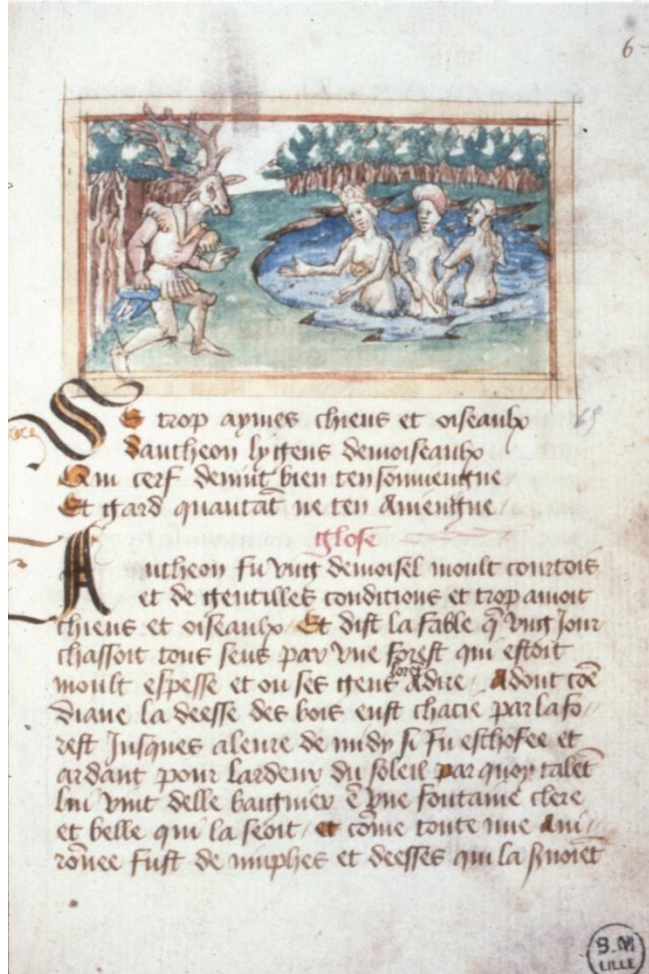 6
Se trop aymes chiens et oiseaulx
Dantheon ly gens demoiseaulx
Qui cerf devint bien ten souviengne
Et gard quautāt ne ten aviengne
glose
Antheon fu vng demoisel moult courtois
et de gentilles conditions et trop amoit
chiens et oiseaulx Et dist la fable q̄ vng Jour
chassoit tous seus par vne forest qui estoit
moult espesse et ou ses gens lorēt Adire / Adont cōe
diane la deesse des bois eust chacie par la fo//
rest Jusques a leure de midy si fu eschofee et
ardant pour lardeur du soleil par quoy talēt
lui vint delle baignier ē vne fontaine clere
et belle qui la seoit / et cōme toute nue Avi//
rōnee fust de nimphes et deesses qui la suoiēt
B.M
LILLE